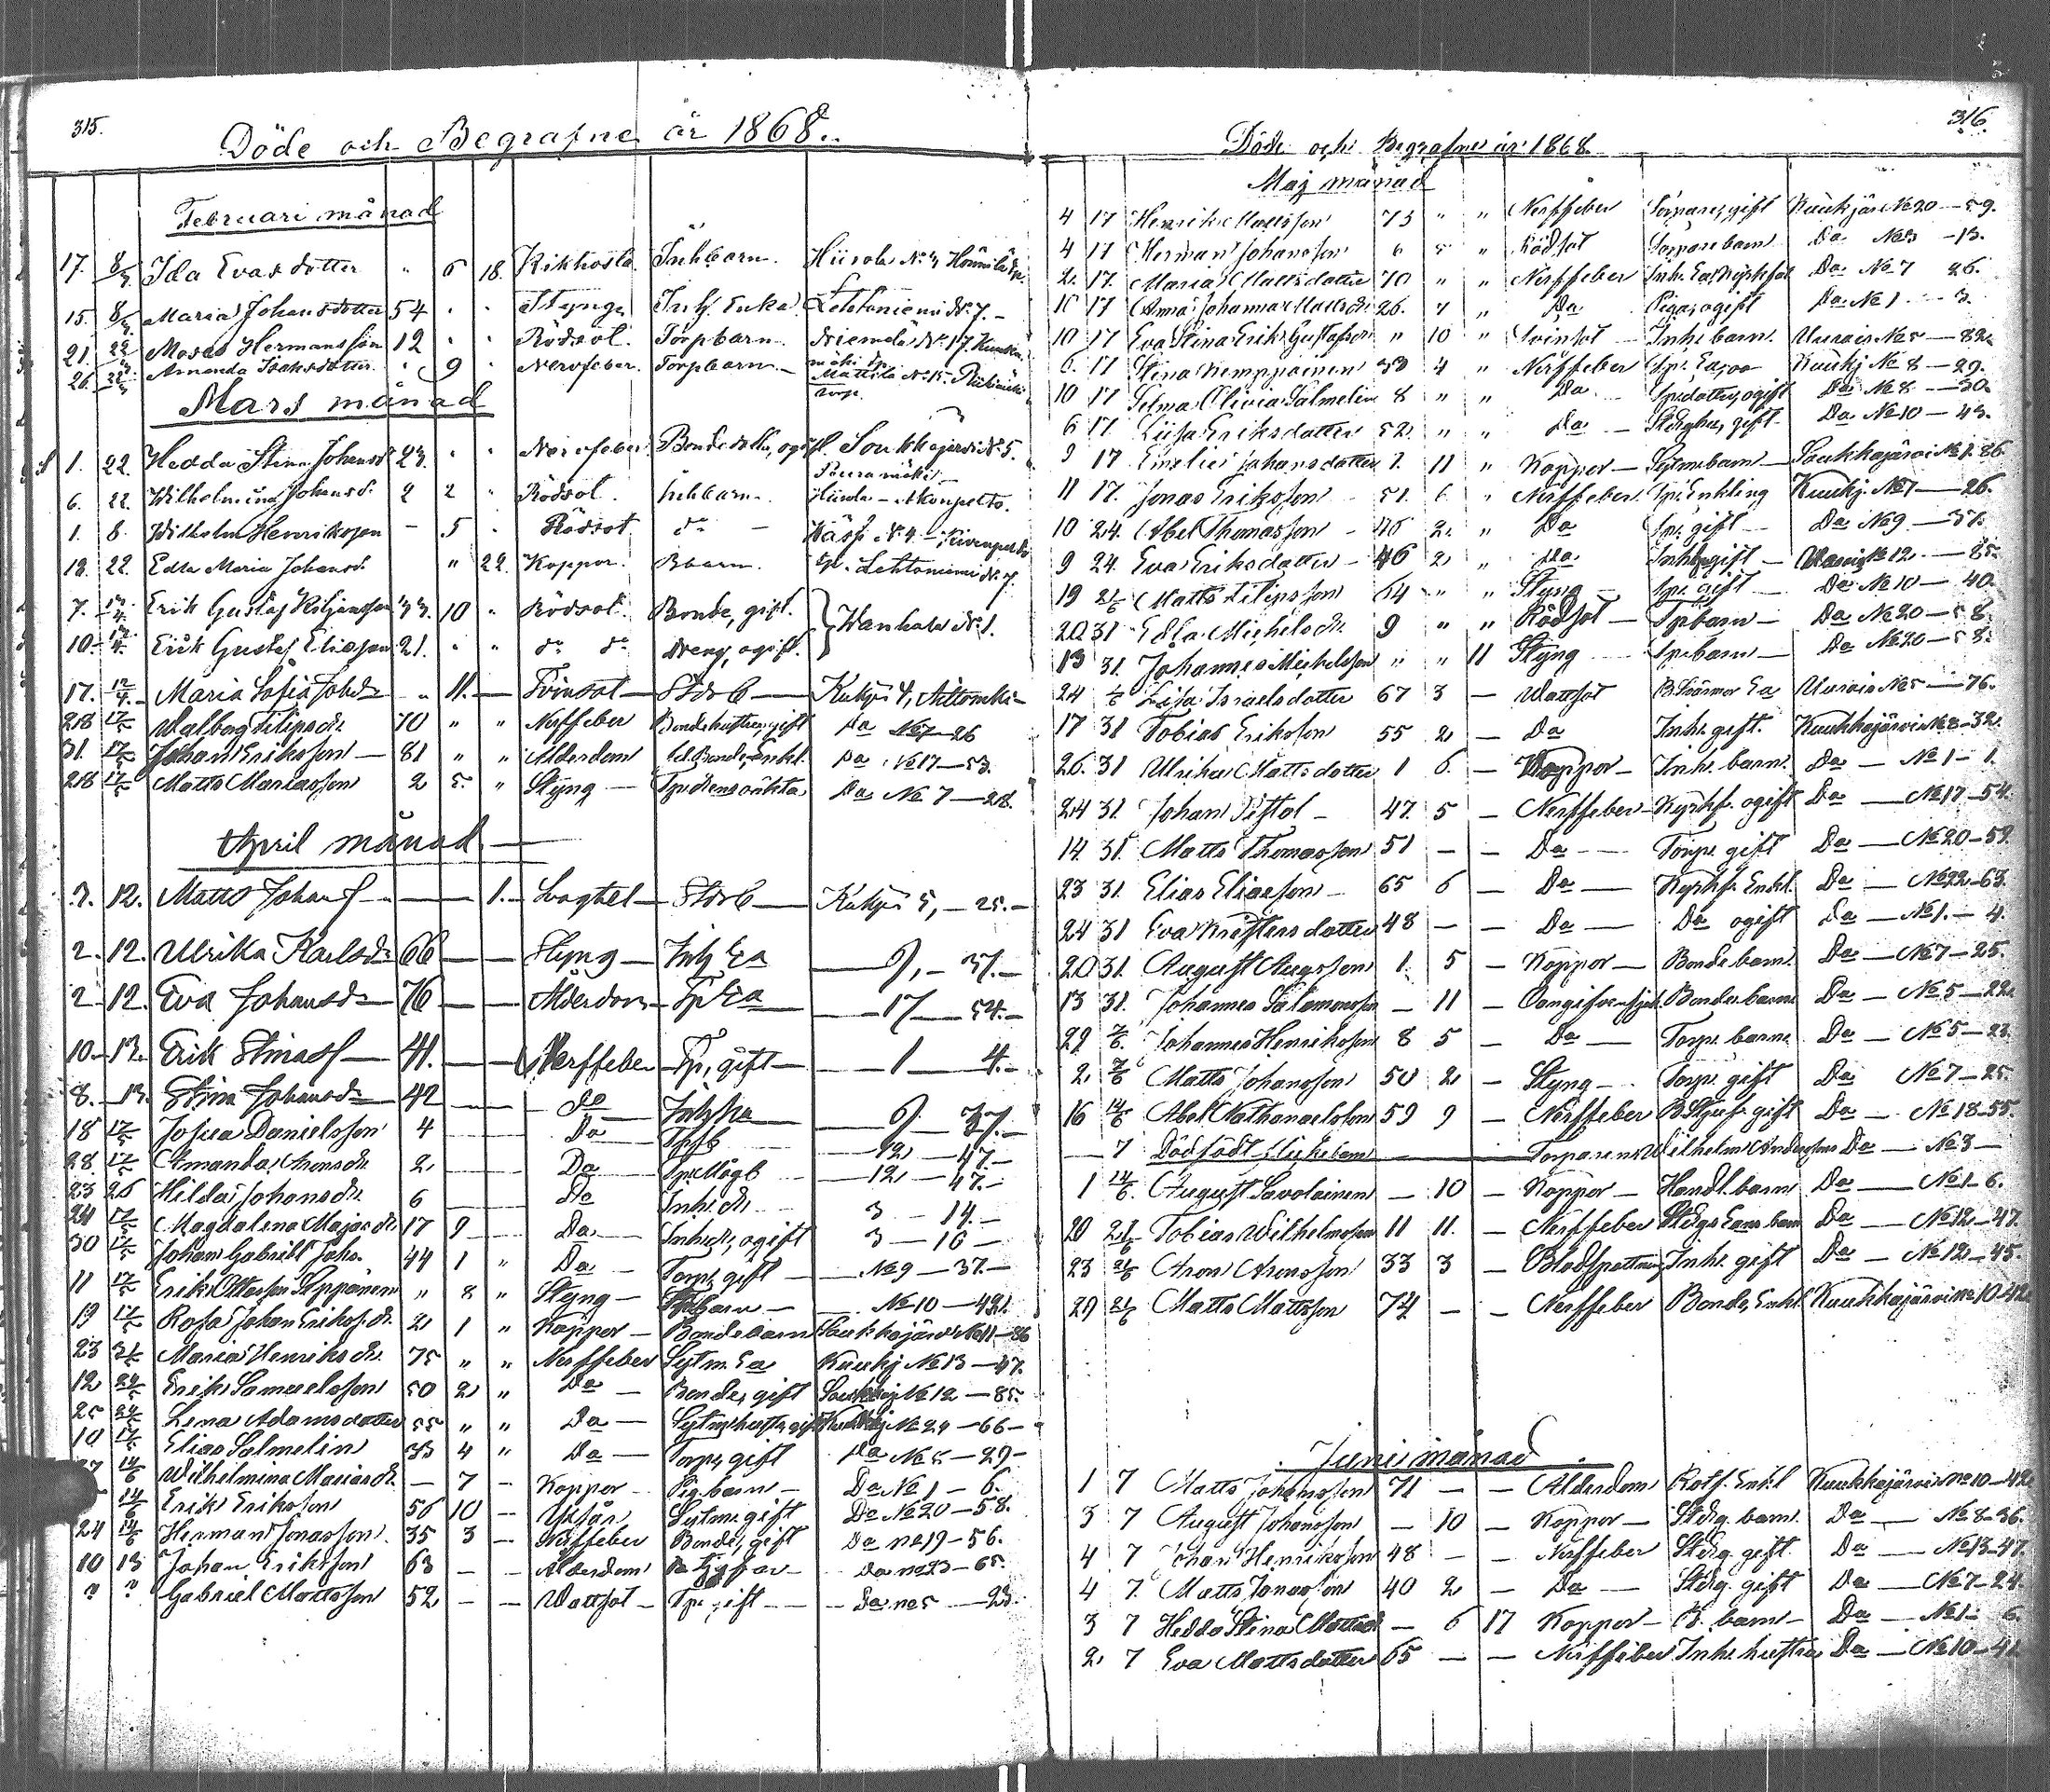 315.
Döde och Begrafne år 1868.
Februari månad
17. 8/3 Ida Evasdotter " 6 18. Kikhosta Inhbarn. Hiirola No 3, Hömilä
15. 8/3 Maria Johansdotter 54 " " Styng Inh. Enka Lehtoniemi No 7.
21. 22/3 Moses Hermansson 12 " " Rödsot. Torpbarn. Niemelä No 17.
26. 22/3 Amanda Isaksdotter " 9 " Nervfeber. Torpbarn. Mattila No 15.
torp.
Mars månad
1. 22. Hedda Stina Johansd 23. " " Nervfeber Bondedotter, ogift. Soukkajärvi No 5.
6. 22. Wilhelmina Johansd. 2 2 " Rödsot. Inhbarn.
1. 8. Wilhelm Henriksson - 5 " Rödsot do
13. 22. Edla Maria Johansd. " 22. Koppor. Bbarn. Lehtoniemi No 7.
7. 12/4 Erik Gustaf 33. 10 " Rödsot Bonde, gift.
10. 12/4 Erik Gustaf Eliasson 21. " " do do Dreng, ogift. Wanhala No 1.
17. 12/4. Maria Sofia Johdr " 11. — Tvinsot — StdrB — Kukjvi 4,
28 17/5 Walborg Filipsdr 70 " " Nerffeber Bondehustru, gift Da No 7 - 26
31. 17/5 Johan Eriksson — 81 " " Alderdom fd. Bonde, Enkl. Da No 17 — 53.
28 17/5 Matts Mariasson 2 5. " Styng — Tpdrens oäkta Da No 7 — 28.
April månad
3. 12. Matts Johansf — — 1. — Slaghet — StdrB — Kukjvi 5, — 25. —
2. 12. Ulrika Karlsdr 66 — — Styng — Inh Ea — 9, — 37. —
2 12. Eva Johansdr 76 — — Alderdom — Tp Ea — 17 — 54. —
10. 13. Erik Stinasf — 41. — — Nerffeber — Tp, gift — — 1 — 4. —
8. 13. Stina Johansdr 42 — — do — 9. — 37. —
18 17/5 Josua Danielsson 4 — — Da — 12 — 47. —
28. 17/5 Amanda Aronsdr. 2 — — Da — 12 — 47. —
23 26 Hilda Johansdr. 6 — — Da Inh. dr. 3 — 14. —
24 17/5 Magdalena Majasdr 17 9 — Da Inh dr, ogift 3 — 16 —
30 17/5 Johan Gabriel Johs. 44 1 " Da — Torp, gift — No 9 — 37. —
11 17/5 Erik Ottosson Seppänen " 8 " Styng — Tpbarn — No 10 — 42.
19 17/5 Rosa Johan Eriksdr. 2 1 " Koppor — Bondebarn Soukkajärvi No 11 — 86
23 31/5 Maria Henriksdr. 75 " " Nerffeber Sytn. Ea Kuukj No 13 — 47.
12 24/5 Erik Samuelsson 50 2 " Da — Bonde, gift Soukkaj No 12 — 85.
25 24/5 Lena Adamsdotter 55 " " Da — Sytn. hustr, gift Kuukkj No 24 — 66 —
10 17/5 Elias Salmelin 33 4 " Da — Torp, gift Da No 8 — 29 —
27 14/6 Wilhelmina Mariasdr. — 7 — Koppor — Pig. barn — Da No 1 — 6.
14/6 Erik Eriksson 56 10 — Sytn. gift Da No 20 — 58.
24 14/6 Herman Jonasson. 35 3 — Nerffeber Bonde, gift Da No 19 — 56.
10 13 Johan Eriksson 63 — — Alderdom Da No 23 — 65.
? ? Gabriel Mattsson 52 — — Wattsot — Tp. gift — — Da No 5 — 23.
316.
Döde och Begrafne år 1868.
Maj månad
4 17 Henrik Mattsson 75 " " Nerffeber Torpare, gift Kuukjär No 20 — 59.
4 17 Herman Johansson 6 5 " Rödsot Torparebarn Da No 3 — 13.
2. 17. Maria Mattsdotter 70 " " Nerffeber Inh. Ea, Da No 7 26.
10 17 Anna Johanna Mattsdr 26. " " Da Piga, ogift Da No 1 — 3.
10 17 Eva Stina Erik Gustafson " 10 " Tvinsot — Inh. barn. No 5 — 82.
6. 17 Stina Kemppainen 33 4 " Nerffeber Kuukj No 8 — 29.
10 17 Selma Olivia Salmelin 8 " " Da Tpsdotter, ogift Da No 8 — 30.
6 17 Liisa Eriksdotter 52. " " Da — gift — Da No 10 — 43.
9 17 Emelie Johansdotter 1. 11 " Koppor — Sytn. barn — Soukkajärvi No 1 — 86
11 17. Jonas Eriksson 51. 6. " Nerffeber. Tp. Enkling Kuukj. No 7 — 26.
10 24. Abel Thomasson — 46 2. " Da Tp. gift — Da No 9 — 37.
9 24. Eva Eriksdotter — 46 2 " Da Inh. gift — No 12. — 85.
19 21/6 Matts Filipsson 64 " " Styng Tp. gift Da No 10 — 40.
20 31 Edla Michelsdr. 9 " " Rödsot — Tpbarn — Da No 20 — 58.
13 31. Johannes Michelsson " " 11 Styng Tpbarn — Da No 20 — 58.
24 Lisa Israelsdotter 67 3 — Wattsot No 5 — 76.
17 31 Tobias Eriksson 55 2 — Da Inh. gift. Kuukkajärvi No 8 — 32.
26. 31 Ulrika Mattsdotter 1 6. — Koppor — Inh. barn. Da — No 1 — 1.
24 31. Johan Pistol — 47. 5 — Nerffeber — Kyrkf. ogift Da — No 17 — 54.
14. 31. Matts Thomasson 51 — — Da — Torp. gift Da — No 20 — 59.
23 31. Elias Eliasson — 65 6 — Da — Kyrkf. Enkl. Da — No 22 — 63.
24 31 Eva Kristersdotter 48 — — Da — Da ogift Da — No 1. — 4.
20 31. August Augsson 1. 5 — Koppor — Bondebarn. Da — No 7 — 25.
13 31. Johannes Salomonsson — 11 — Oangifven sjuk. Bondebarn Da — No 5 — 22.
29 7/6. Johannes Henriksson 8 5 — Da — Torp. barn. Da — No 5 — 23.
2. 7/6 Matts Johansson 50 2 — Styng — Torp. gift Da No 7 — 25.
16 14/6 Abel Nathanaelsson 59 9 — Nerffeber gift Da — No 18 — 55.
— 7 Dödfödt flickebarn — Torparens Wilhelm Anderssons Da — No 3 —
1 14/6. August Savolainen — 10 — Koppor — Handl. barn Da — No 1 — 6.
20 21/6 Tobias Wilhelmsson 11 11. — Nerffeber Da — No 12 — 47.
23 21/6 Aron Aronsson 33 3 — Blodspottning Inh. gift Da — No 12 — 45.
29 21/6 Matts Mattsson 74 — — Nerffeber Bonde, Enkl. Kuukkajärvi No 10 — 42.
Juni månad
1 7 Matts Johansson 71 — — Alderdom Rotf. Enkl Kuukkajärvi No 10 — 42
3 7 August Johansson — 10 — Koppor — Stdrg. barn. Da — No 8 — 36.
4 7 Johan Henriksson 48 — — Nerffeber Stdrg. gift. Da — No 13 — 47.
4 7. Matts Jonasson 40 2 — Da — Stdrg. gift Da — No 7 — 24.
3 7 Hedda Stina Mattsd — 6 17 Koppor — B. barn — Da — No 1 — 6.
2. 7 Eva Mattsdotter 65 — — Nerffeber Inh. hustru Da — No 10 — 41